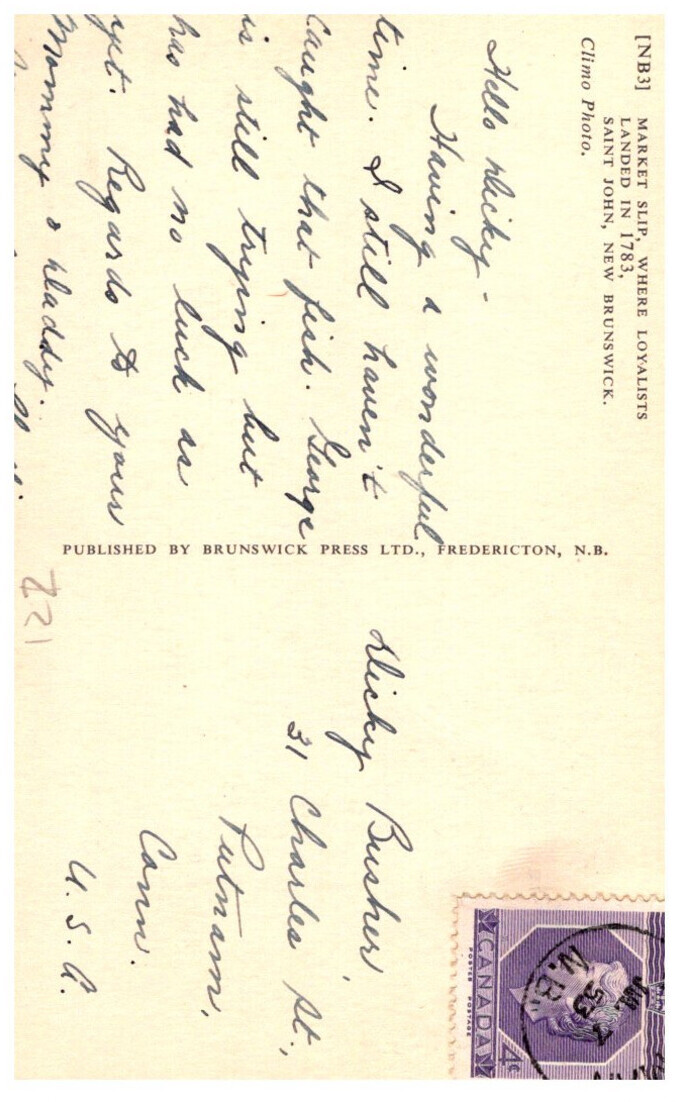 [NB3] MARKET SLIP, WHERE LOYALISTS
LANDED IN 1783,
SAINT JOHN, NEW BRUNSWICK.
Climo Photo.
Hello Dicky -
Having a wonderful
time. I still haven't
caught that fish. George
is still trying but
has had no luck as
yet. Regards to your
Mommy & Daddy.
PUBLISHED BY BRUNSWICK PRESS LTD., FREDERICTON, N.B.
Dicky Busher,
31 Charles St.,
Putnam,
Conn.
U.S.A.
221
CANADA
POSTES POSTAGE
4¢
N.B.
53